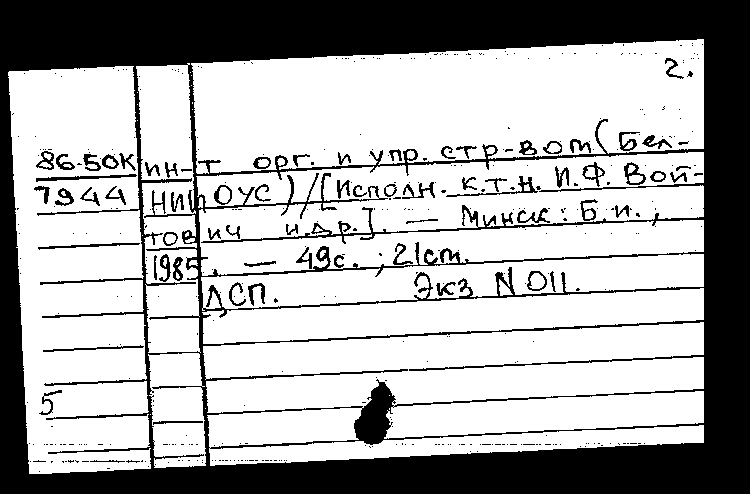 2.
86-50К ин-т орг. и упр. стр-вом (Бел-
7944 НИИОУС) /[Исполн. к.т.н. И.Ф. Вой-
тович и.др.]. — Минск: Б.и.,
1985. — 49с. ; 21см.
ДСП. Экз N 011.
5